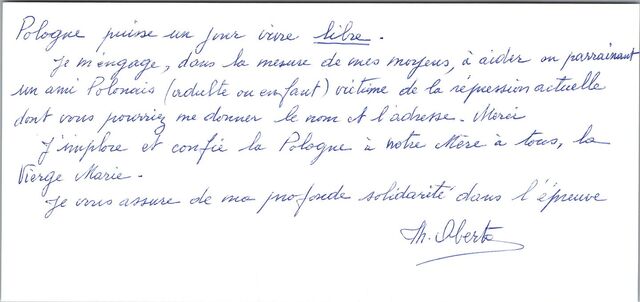 Pologne puisse un jour vivre libre.
Je m'engage, dans la mesure de mes moyens, à aider en parrainant
un ami Polonais (adulte ou enfant) victime de la répression actuelle
dont vous pourriez me donner le nom et l'adresse. Merci
J'implore et confie la Pologne à notre Mère à tous, la
Vierge Marie.
Je vous assure de ma profonde solidarité dans l'épreuve
Th.